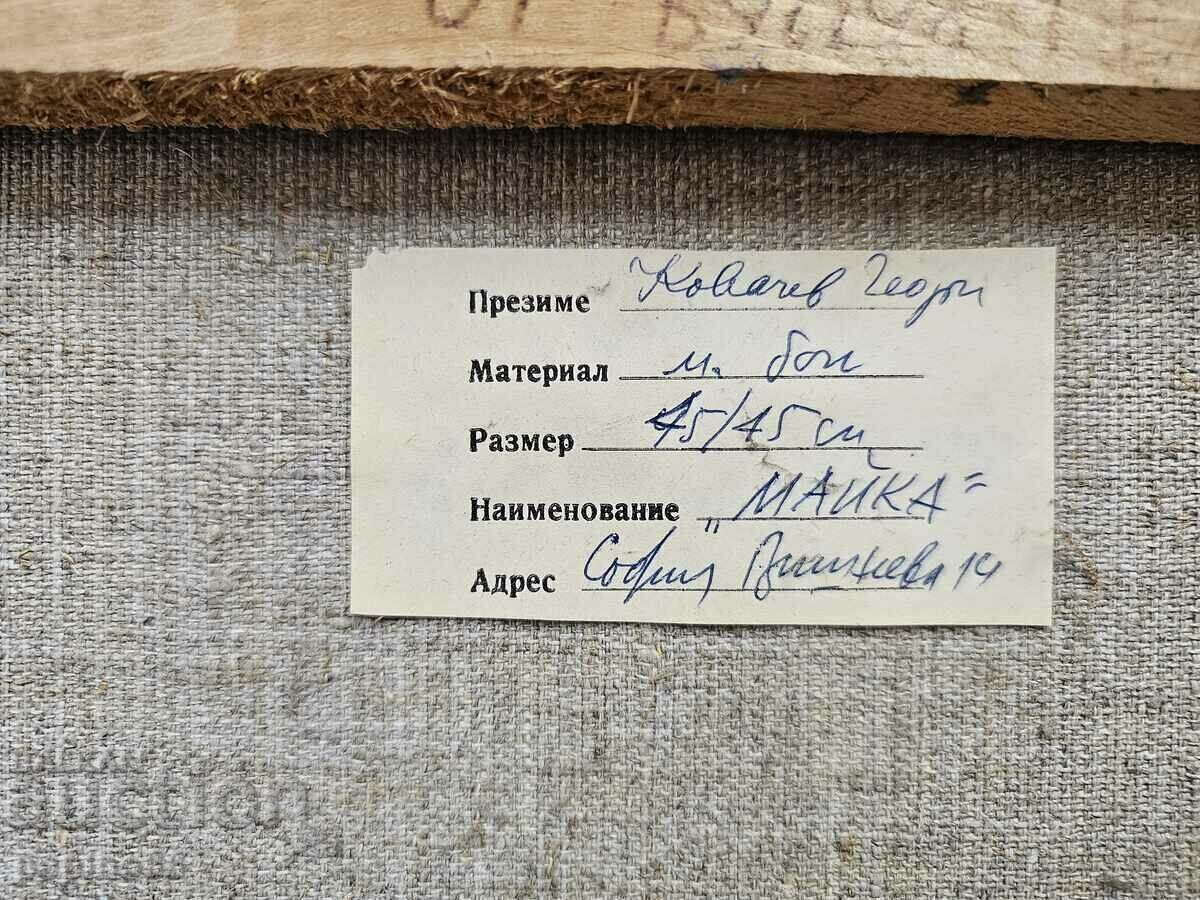 от
Презиме Ковачев Георги
Материал м. бои
Размер 45/45 см
Наименование „МАЙКА"
Адрес София Вишнева 14